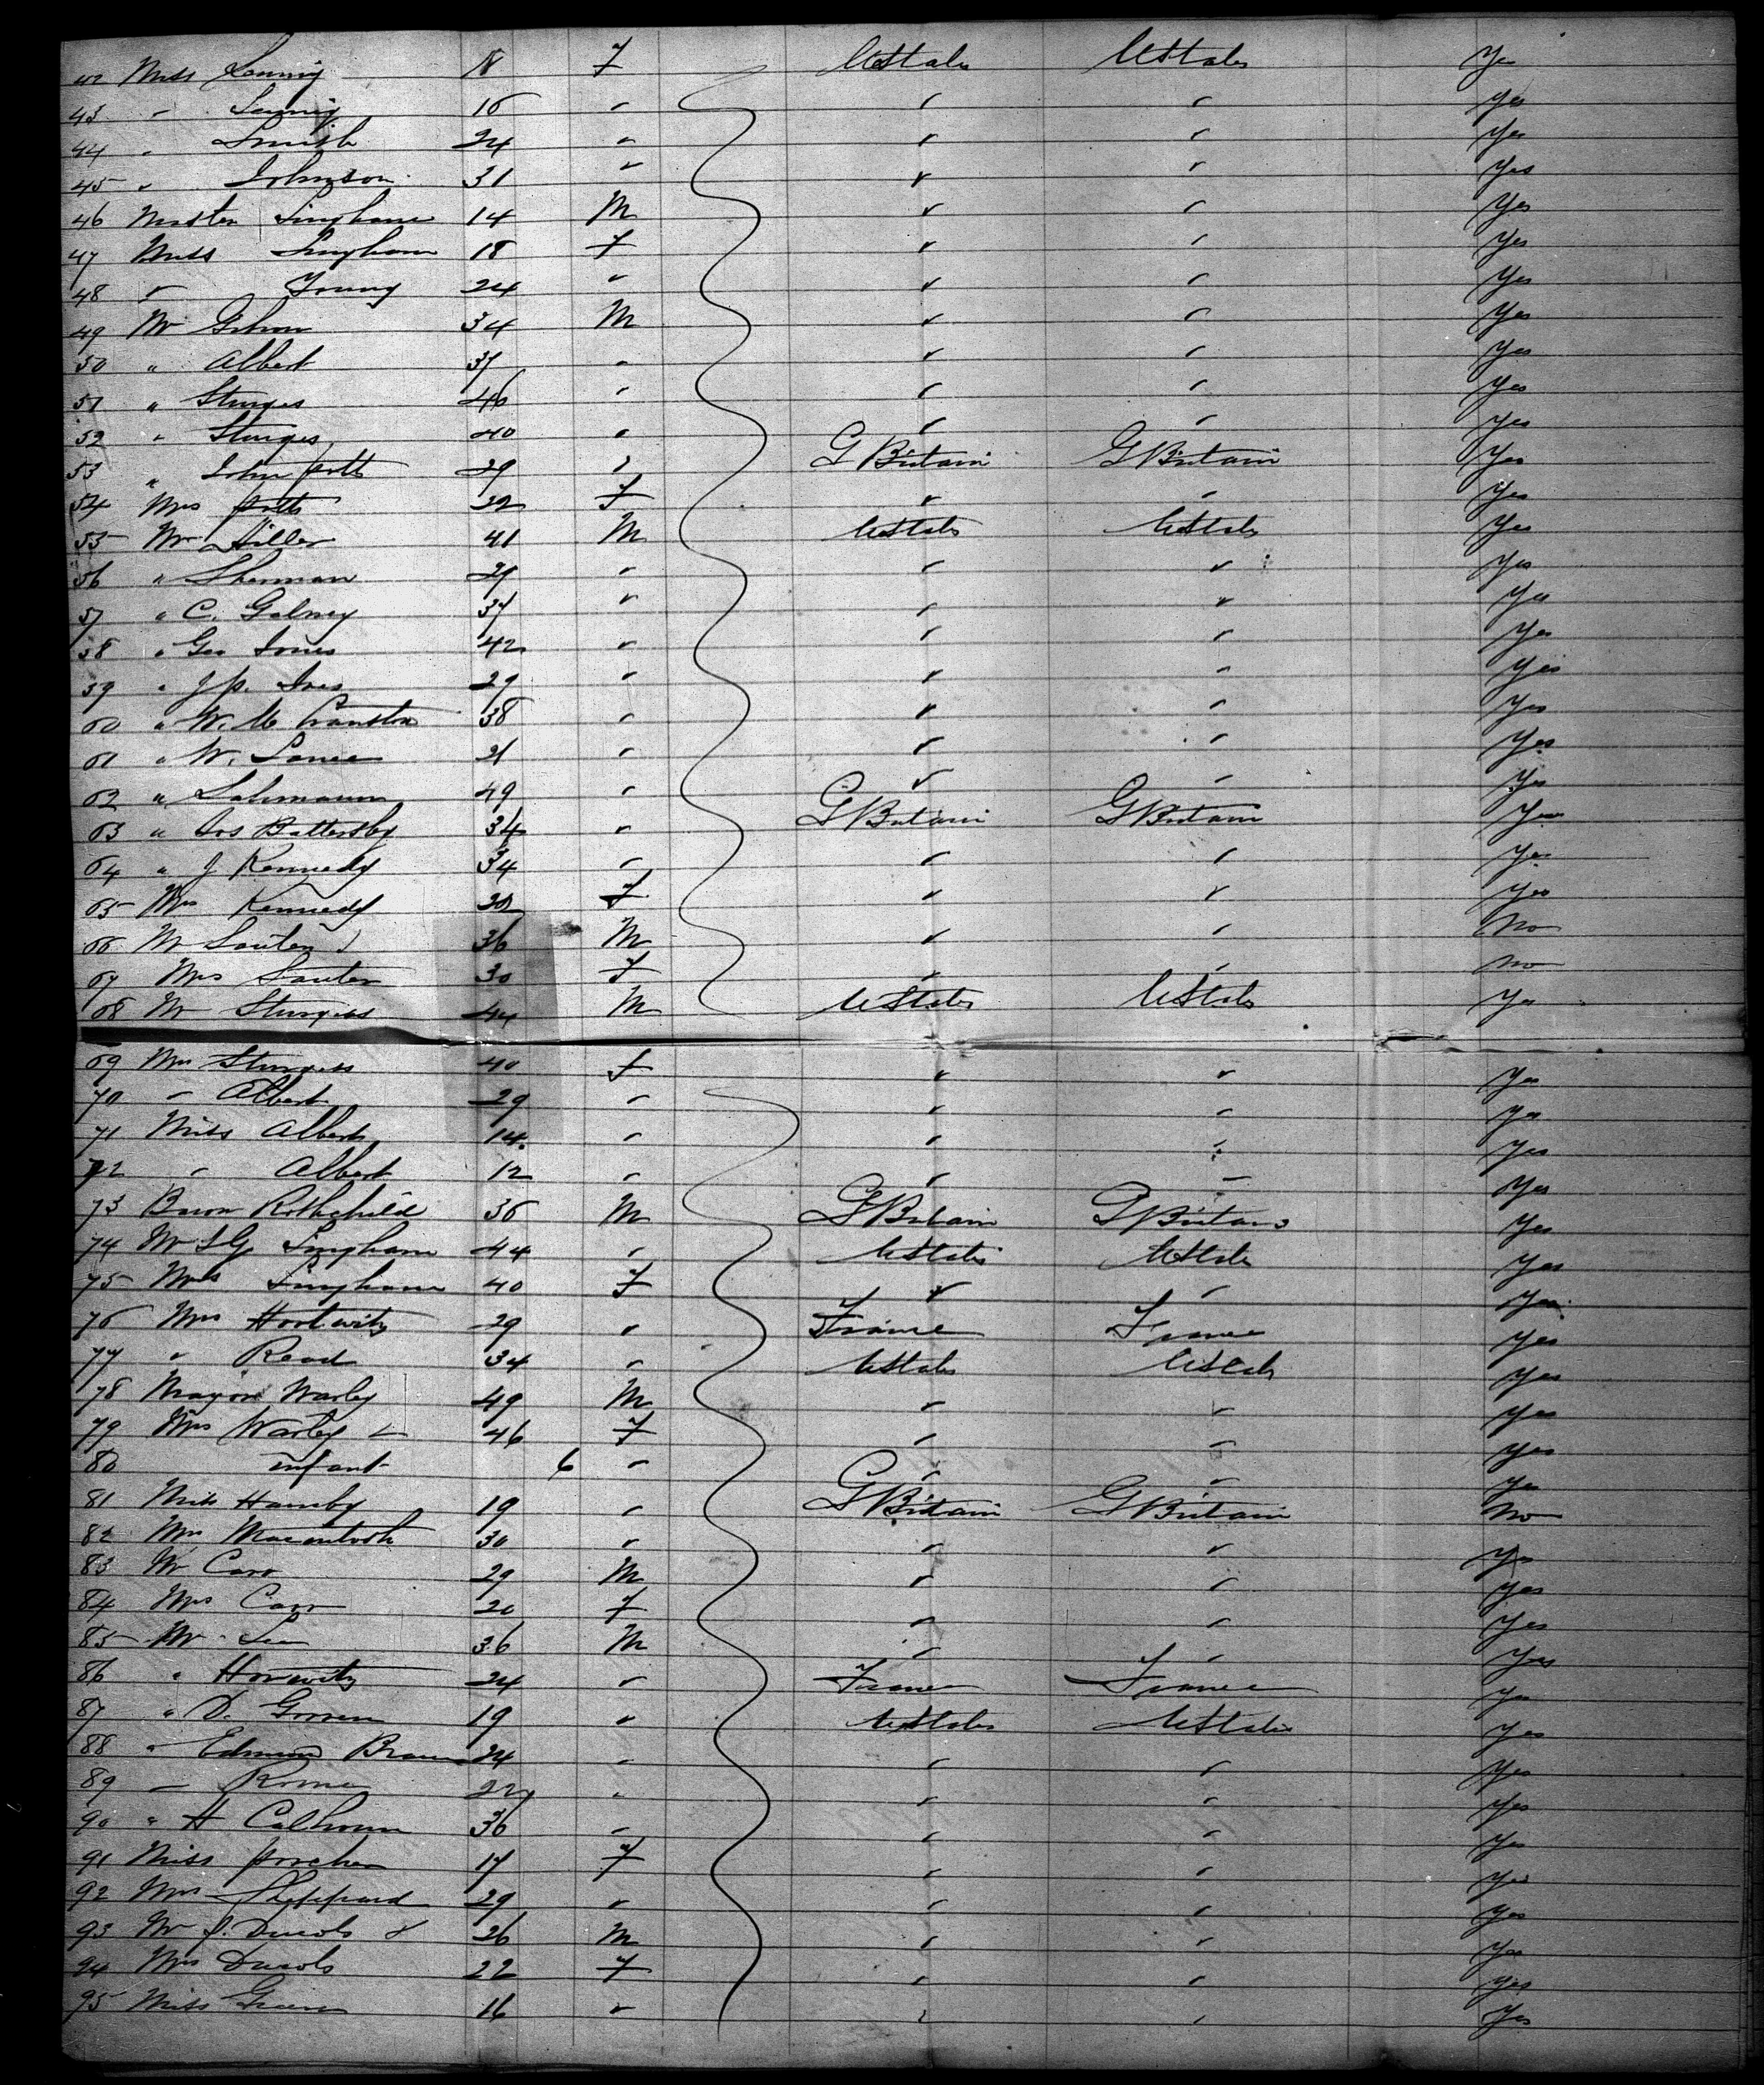 42 Miss Lannig 18 F UStates UStates Yes
43 " Lannig 16 " " " Yes
44 " Smith 24 " " " Yes
45 " Johnson 31 " " " Yes
46 Master Singham 14 M " " Yes
47 Miss Singham 18 F " " Yes
48 " Young 24 " " " Yes
49 Mr Gibson 34 M " " Yes
50 " Albert 37 " " " Yes
51 " Sturges 46 " " " Yes
52 " Sturges 40 " " " Yes
53 " John Potts 29 " G Britain G Britain Yes
54 Mrs Potts 22 F " " Yes
55 Mr Hiller 41 M UStates UStates Yes
56 " Sherman 29 " " " Yes
57 " C. Galney 37 " " " Yes
58 " Geo Jones 42 " " " Yes
59 " J P. Ives 29 " " " Yes
60 " W. M Cranston 38 " " " Yes
61 " W. Lance 21 " " " Yes
62 " Lahmann 49 " " " Yes
63 " Jos Battersby 34 " G Britain G Britain Yes
64 " J Kennedy 34 " " " Yes
65 Mrs Kennedy 28 F " " Yes
66 Mr Sauter 36 M " " No
67 Mrs Sauter 30 F " " No
68 Mr Sturgess 44 M UStates UStates Yes
69 Mrs Sturgess 40 F " " Yes
70 " Albert 29 " " " Yes
71 Miss Albert 14 " " " Yes
72 " Albert 12 " " " Yes
73 Baron Rothchild 36 M G Britain G Britain Yes
74 Mr S G Singham 44 " UStates UStates Yes
75 Mrs Singham 40 F " " Yes
76 Mrs Hortwitz 29 " France France Yes
77 " Read 34 " UStates UStates Yes
78 Mayor Warley 49 M " " Yes
79 Mrs Warley & 46 F " " Yes
80 infant 6 " " " Yes
81 Miss Hamby 19 " G Britain G Britain No
82 Mrs Macantosh 30 " " " Yes
83 Mr Carr 29 M " " Yes
84 Mrs Carr 20 F " " Yes
85 Mr Lee 36 M " " Yes
86 " Horwitz 24 " France France Yes
87 " D. Green 19 " UStates UStates Yes
88 " Edmund Brown 24 " " " Yes
89 " Rome 22 " " " Yes
90 " H Calhoun 36 " " " Yes
91 Miss Porcher 17 F " " Yes
92 Mrs Sheppard 29 " " " Yes
93 Mr J. Ducols & 26 M " " Yes
94 Mrs Ducols 22 F " " Yes
95 Miss Green 16 " " " Yes